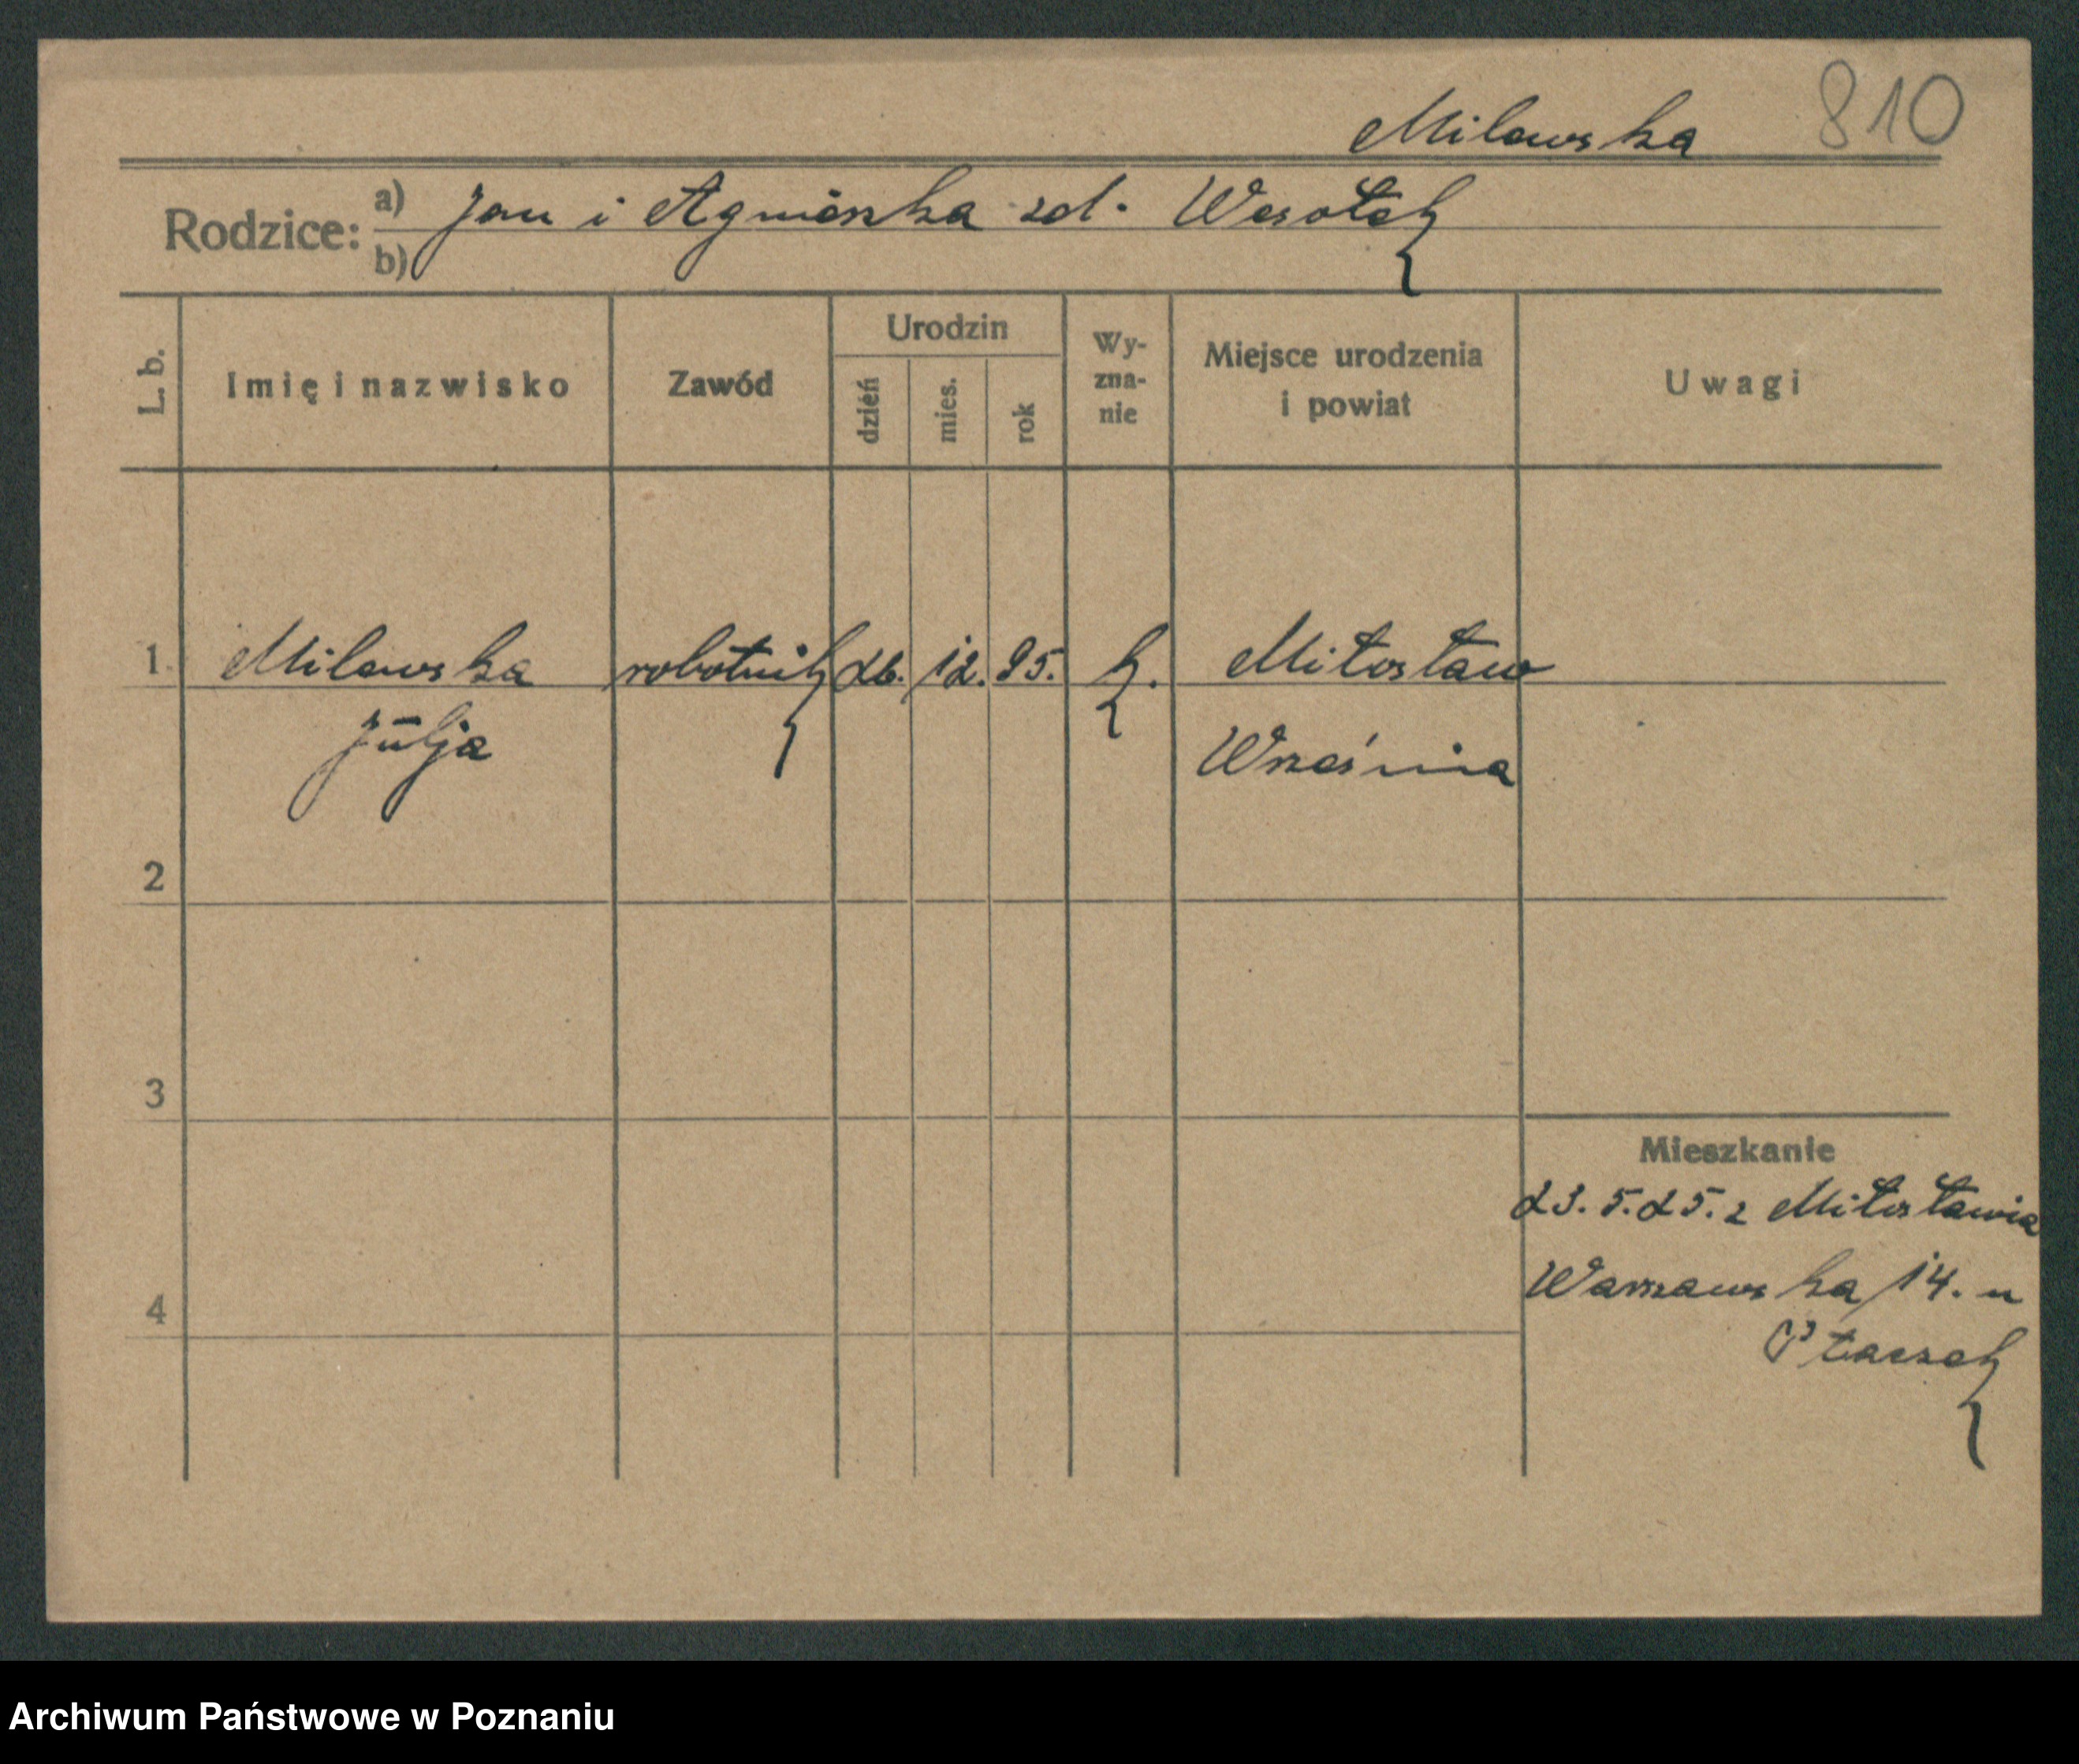 Milewska 810
Rodzice: a) Jan i Agnieszka zd. Wesołek
b)
L. b. Imię i nazwisko Zawód Urodzin dzień mies. rok Wy-zna-nie Miejsce urodzenia i powiat Uwagi
1. Milewska robotnik 26. 12. 95. k. Miłosław
Julja Września
2
3
Mieszkanie
23. 5. 25. z Miłosławia
Warszawska 14. u
4
Ptaszek
Archiwum Państwowe w Poznaniu